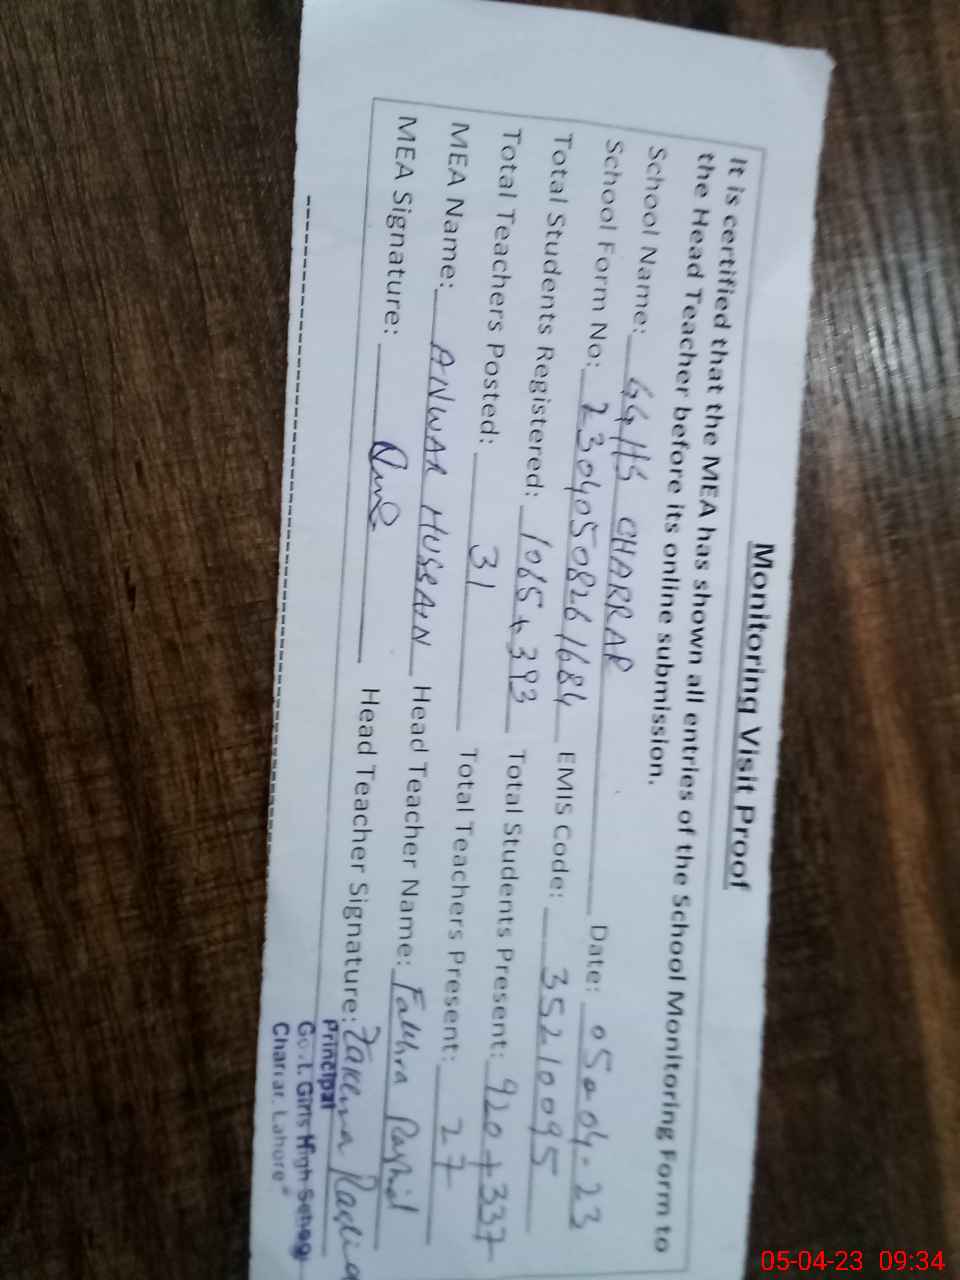 Monitoring Visit Proof
It is certified that the MEA has shown all entries of the School Monitoring Form to
the Head Teacher before its online submission.
School Name: GGHS CHARRAR Date: 05-04-23
School Form No: 23040508261684 EMIS Code: 35210095
Total Students Registered: 1065+393 Total Students Present: 920+337
Total Teachers Posted: 31 Total Teachers Present: 27
MEA Name: ANWAR HUSSAIN Head Teacher Name: Fakhra Rashid
MEA Signature: Head Teacher Signature:
Principal
Govt. Girls High School
Charrar, Lahore
05-04-23 09:34